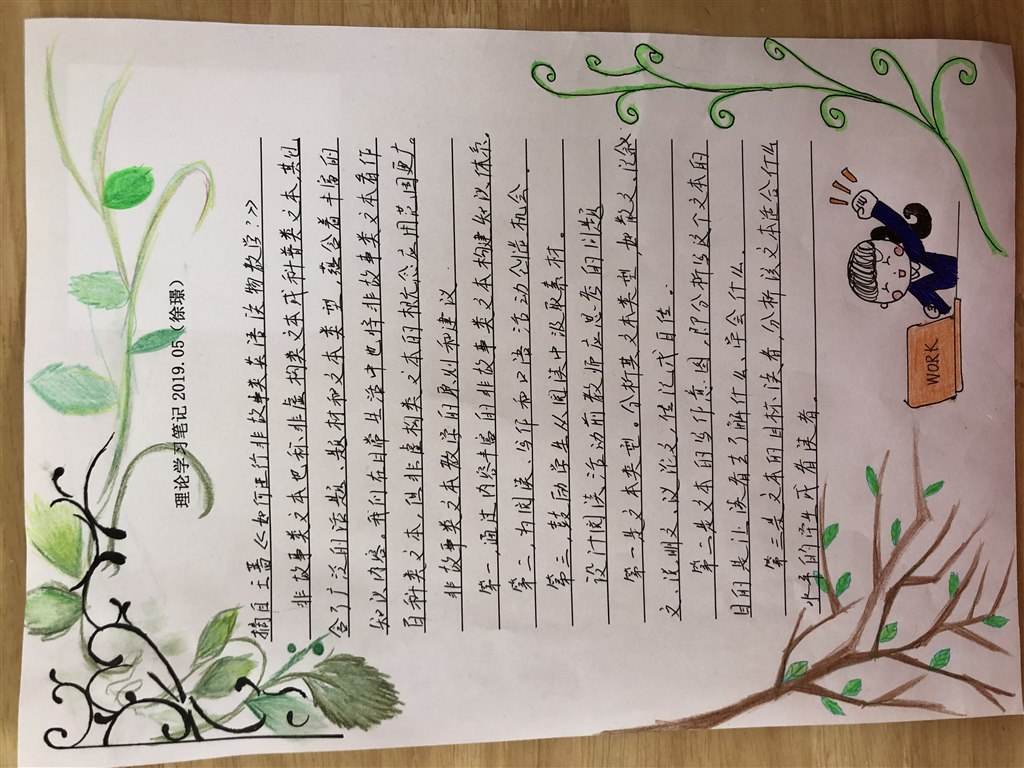 理论学习笔记 2019.05（徐璟）
摘自王蔷《如何进行非故事类英语读物教学？》
非故事类文本也称非虚构类文本或科普类文本,其包
含了广泛的话题、题材和文本类型,蕴含着丰富的
知识内容。我们在日常生活中也将非故事类文本看作
百科类文本,但非虚构类文本的概念应用范围更广。
非故事类文本教学的原则和建议
第一,通过内容丰富的非故事类文本构建知识体系.
第二,为阅读、写作和口语活动创造机会.
第三,鼓励学生从阅读中汲取素材。
设计阅读活动前教师应思考的问题
第一是文本类型。分析其文本类型,如散文、记叙
文、说明文、议论文、传记或自传.
第二是文本的写作意图,即分析写这个文本的
目的是让读者去了解什么、学会什么.
第三是文本的目标读者,分析该文本适合什么
水平的学生或者读者.
WORK